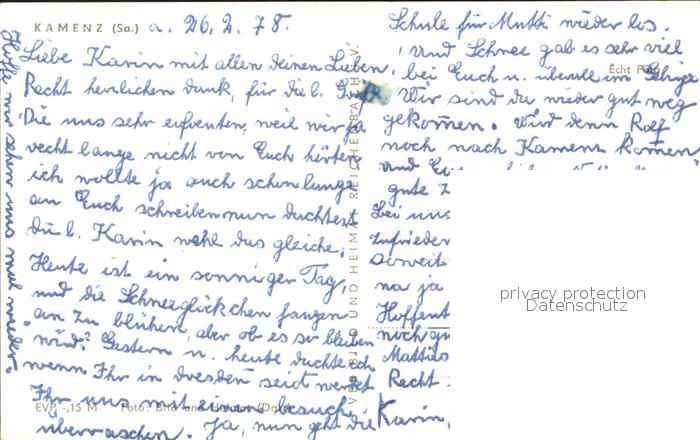 KAMENZ (Sa.) a. 26.2.78.
Liebe Karin mit allen deinen Lieben,
Recht herzlichen dank, für die l.
Die uns sehr erfreuten, weil wir ja
recht lange nicht von Euch hörten
ich wollte ja auch schon lange
an Euch schreiben nun dachtest
du l. Karin wohl das gleiche.
Heute ist ein sonniger Tag,
und die Schneeglöckchen fangen
an zu blühen, aber ob es so bleiben
wird? Gestern u. heute dachte ich
wenn Ihr in dresden seit werdet
Ihr uns mit einen besuche
überraschen. Ja, nun geht die
EVP -,15 M Foto: Bild und Heimat
Hoffe wir sehen uns mal wieder.
VEB BILD UND HEIMAT REICHENBACH i. V.
Schule für Mutti wieder los.
Und Schnee gab es sehr viel
bei Euch u. überall im Gebirge
Echt
Wir sind da wieder gut weg
gekomen. Wird denn Rolf
noch nach Kamenz komen
und
gute
bei uns
zufrieden
soweit
na ja
Hoffent
noch
Recht
Karin,
privacy protection
Datenschutz